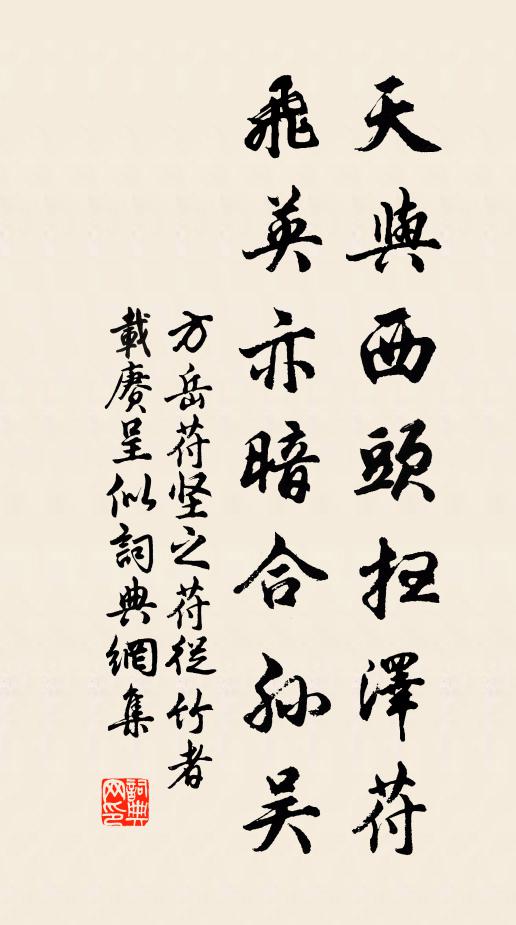 天與西頭扭澤苻
飛英亦暗合孙吴
方岳苻坚之苻從竹者
載賡呈似詞典網集
詞典网印